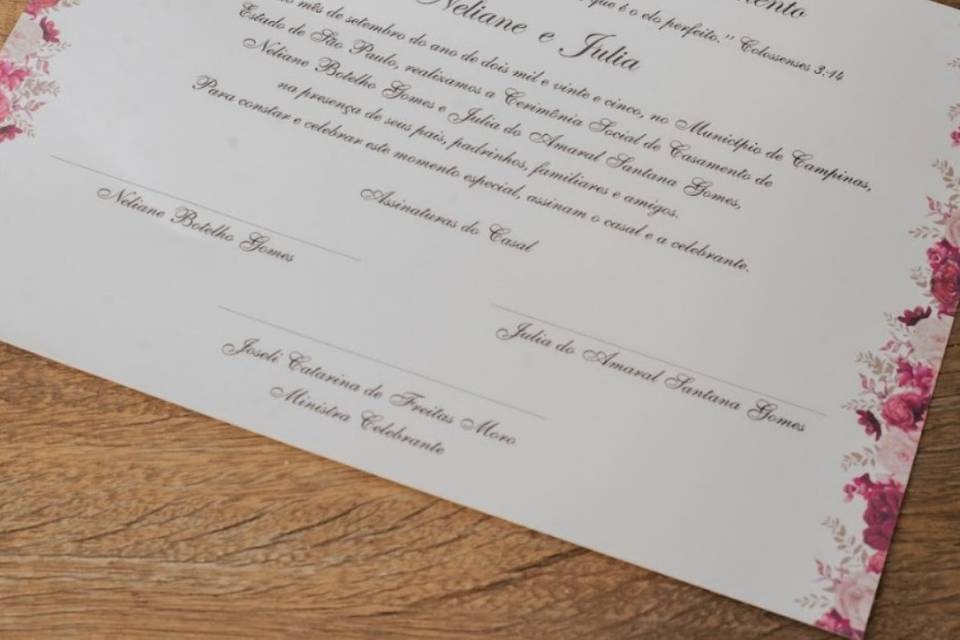 que é o elo perfeito." Colossenses 3:14
Neliane e Julia
mês de setembro do ano de dois mil e vinte e cinco, no Município de Campinas,
Estado de São Paulo, realizamos a Cerimônia Social de Casamento de
Neliane Botelho Gomes e Julia do Amaral Santana Gomes,
na presença de seus pais, padrinhos, familiares e amigos.
Para constar e celebrar este momento especial, assinam o casal e a celebrante.
Assinaturas do Casal
Neliane Botelho Gomes
Julia do Amaral Santana Gomes
Joseli Catarina de Freitas Moro
Ministra Celebrante